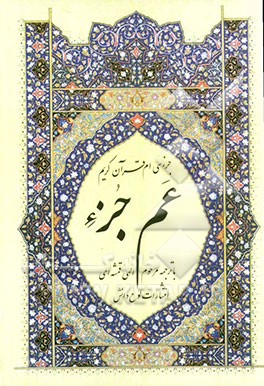 جزء سی ام قرآن کریم
و
عم جزء
با ترجمه مرحوم الهی قمشه ای
انتشارات لوح دانش